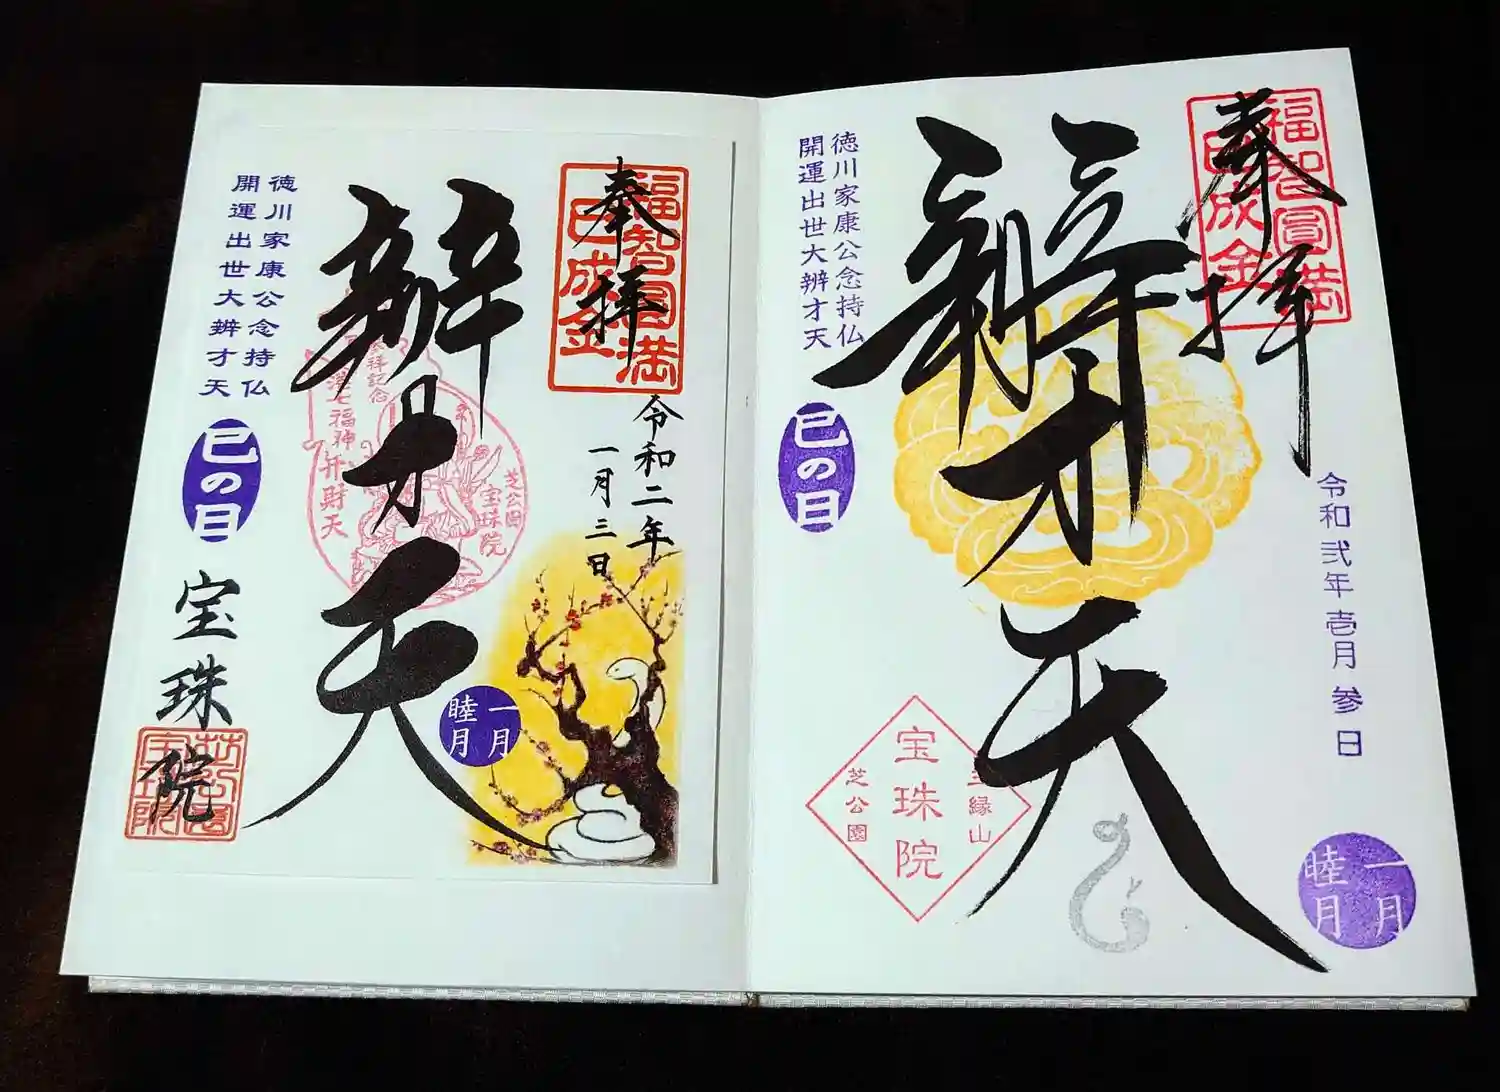 奉拝
福智圓満
巳成金
令和二年
一月三日
辨才天
奉拝記念
港七福神
弁財天
芝公園
宝珠院
徳川家康公念持仏
開運出世大辨才天
巳の日
宝珠院
一月
睦月
奉拝
福智圓満
巳成金
令和弐年壱月参日
辨才天
徳川家康公念持仏
開運出世大辨才天
巳の日
三縁山
宝珠院
芝公園
一月
睦月